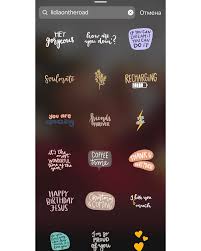 lidiaontheroad
Отмена
HEY
gorgeous
how are
you doin?
IF YOU CAN
DREAM IT
YOU CAN
DO IT
Soulmate
RECHARGING
you are
amazing
friends
forever
it's the most
wonderful
time of the
year
COFFEE
time
THANK
HAPPY
BIRTHDAY
JESUS
I love you
so much
I'm so
proud
of you